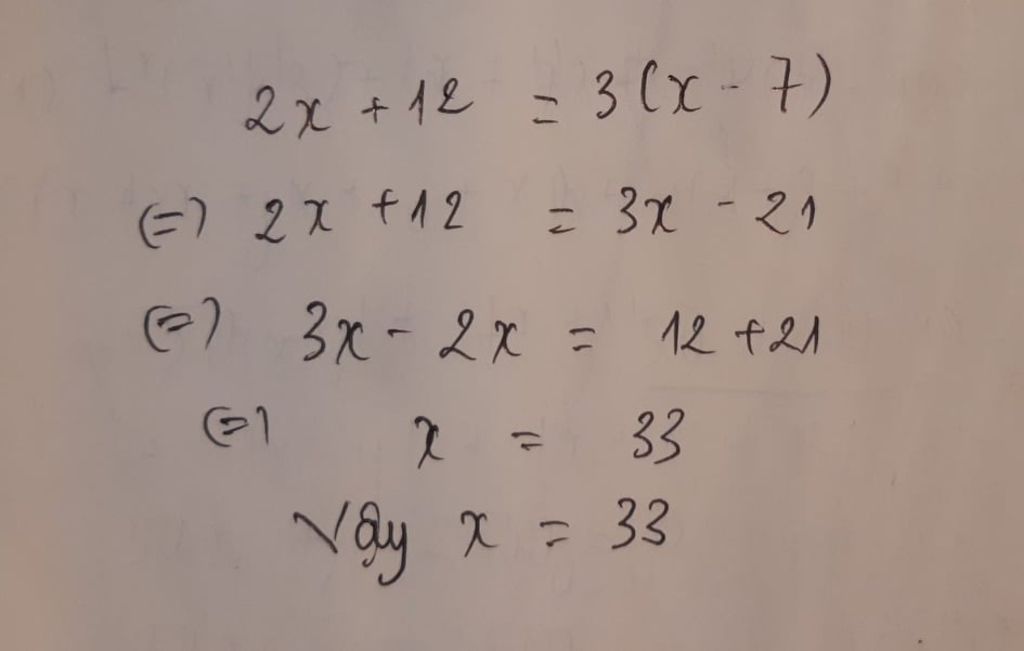 2x + 12 = 3(x - 7)
(=) 2x + 12 = 3x - 21
(=) 3x - 2x = 12 + 21
(=) x = 33
Vậy x = 33